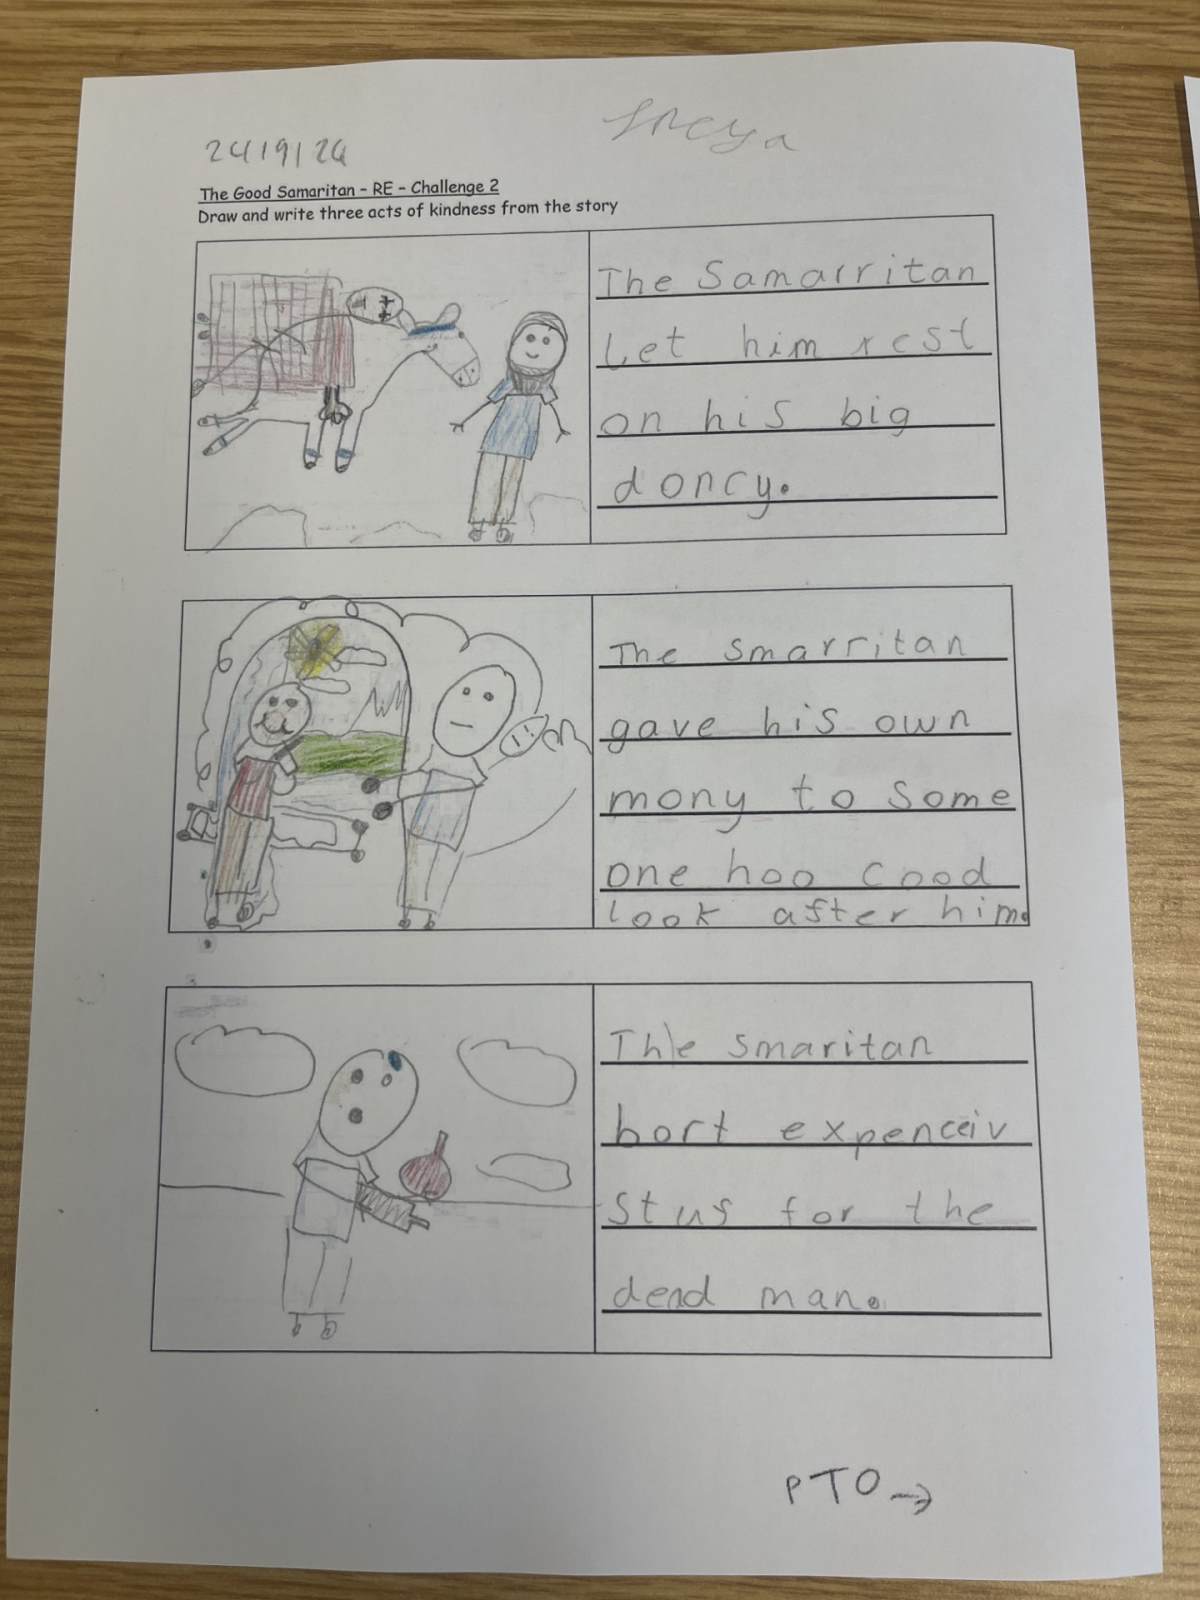 Freya
24/9/24
The Good Samaritan - RE - Challenge 2
Draw and write three acts of kindness from the story
The Samarritan
Let him rest
on his big
doncy.
The Smarritan
gave his own
mony to Some
one hoo cood
look after him.
The Smaritan
bort expenceiv
stuf for the
dead man.
PTO →